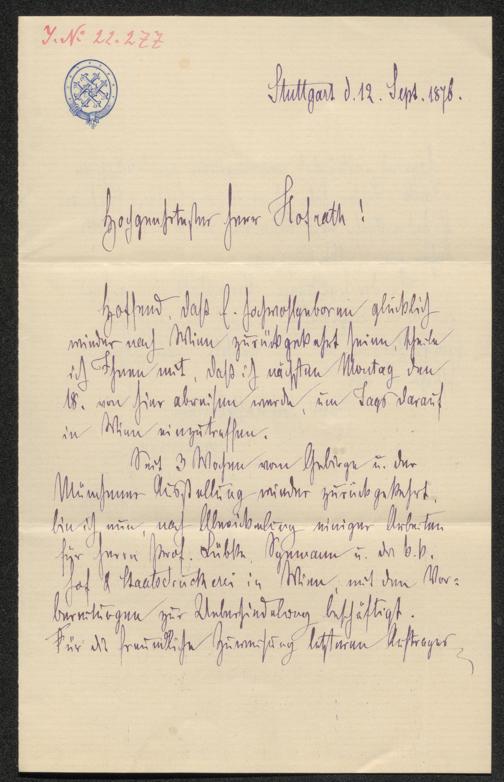 J. No 22.277
Stuttgart d. 12. Sept. 1876.
Hochgeehrtester Herr Hofrath!
Hoffend, daß E. Hochwohlgeboren glücklich
wieder nach Wien zurückgekehrt seien, theile
ich Ihnen mit, daß ich nächsten Montag den
18. von hier abreisen werde, um Tags darauf
in Wien einzutreffen.
Seit 3 Wochen vom Gebirge u. der
Münchener Ausstellung wieder zurückgekehrt,
bin ich nun, nach Abwickelung einiger Arbeiten
für Herrn Prof. Lübke, Seemann u. die k.k.
Hof & Staatsdruckerei in Wien, mit den Vor=
bereitungen zur Uebersiedelung beschäftigt.
Für die freundliche Zuweisung letzteren Auftrages